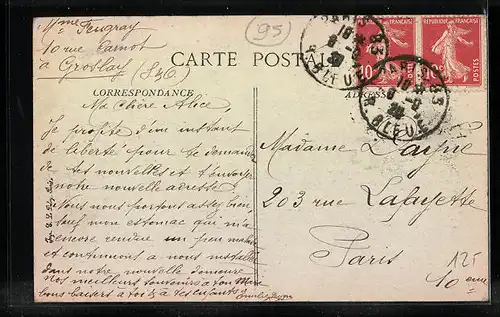 Mme Feugray
10 rue Carnot
à Groslay
(S&O)
95
CARTE POSTALE
CORRESPONDANCE
Ma Chère Alice,
Je profite d'un instant
de liberté pour te demander
de tes nouvelles et t'envoyer
notre nouvelle adresse
Nous nous portons assez bien
sauf mon estomac qui m'a
encore rendu un peu malade
et continuons à nous installer
dans notre nouvelle demeure
nos meilleurs souvenirs à ton Mari
bons baisers à toi & à tes enfants
10c
POSTES
10c
POSTES
PARIS 83
R. BLEUE
PARIS 83
R. BLEUE
Madame
203 rue Lafayette
Paris
10ème
125